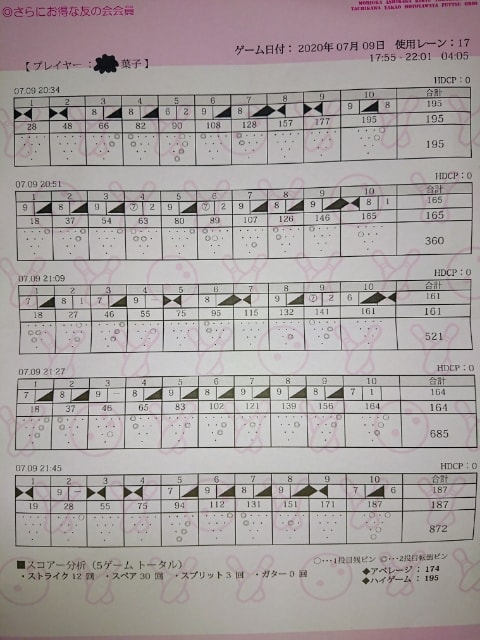 ◎さらにお得な友の会会員
ゲーム日付: 2020年07月09日 使用レーン: 17
【 プレイヤー: 葉子】 17:55 - 22:01 04:05
07.09 20:34 HDCP: 0
1 2 3 4 5 6 7 8 9 10 合計
8 8 6 2 9 8 9 8 195
28 48 66 82 90 108 128 157 177 195 195
195
07.09 20:51 HDCP: 0
1 2 3 4 5 6 7 8 9 10 合計
9 8 9 ⑦ 2 9 ⑦ 2 9 8 9 8 1 165
18 37 54 63 80 89 107 126 146 165 165
360
07.09 21:09 HDCP: 0
1 2 3 4 5 6 7 8 9 10 合計
7 8 1 7 9 - 8 9 ⑦ 2 6 161
18 27 46 55 75 95 115 132 141 161 161
521
07.09 21:27 HDCP: 0
1 2 3 4 5 6 7 8 9 10 合計
7 8 9 - 9 8 9 8 9 8 7 1 164
18 37 46 65 83 102 121 139 156 164 164
685
07.09 21:45 HDCP: 0
1 2 3 4 5 6 7 8 9 10 合計
9 - 7 9 8 9 7 6 187
19 28 55 75 94 112 131 151 171 187 187
872
■スコアー分析（5ゲーム トータル） ○･･･1投目残ピン ◎･･･2投目転倒ピン
・ストライク 12 回 ・スペア 30 回 ・スプリット 3 回 ・ガター 0 回
◆アベレージ: 174
◆ハイゲーム: 195